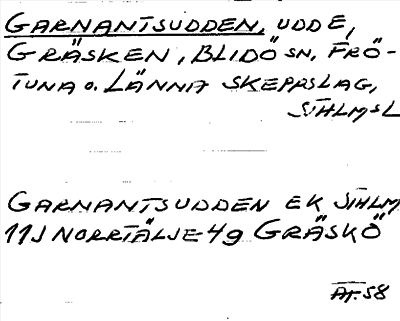 GARNANTSUDDEN, UDDE,
GRÄSKEN, BLIDÖ SN, FRÖ-
TUNA O. LÄNNA SKEPPSLAG,
STHLMSL
GARNANTSUDDEN EK STHLM
11J NORRTÄLJE 4g GRÄSKÖ
AT. 58